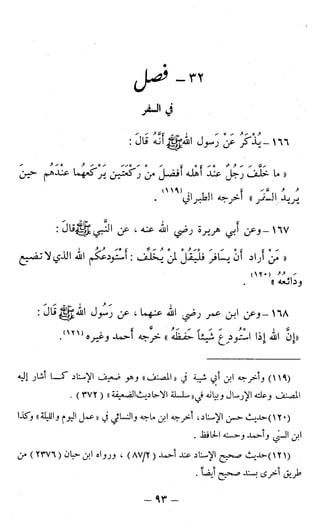 ٣٢ - فصل
في السفر
١٦٦ - يُذْكَرُ عَنْ رَسول الله ﷺ أَنَّهُ قَالَ :
« ما خَلَّفَ رَجُلٌ عِنْدَ أهْلِهِ أفْضَلَ مِنْ رَكْعَتَينِ يَرْكَعهُما عِنْدَهُم حينَ
يُرِيدُ السَّفَر » أخرجه الطبراني (١١٩) .
١٦٧ - وعن أبي هريرة رضي الله عنه ، عن النَّبي ﷺ قالَ :
« مَنْ أراد أنْ يسافرَ فَلْيَقُلْ لِمَنْ يُخَلِّف : أَسْتَودِعُكُم الله الذي لا تضيع
ودائعُه » (١٢٠) .
١٦٨ - وعن ابن عمر رضي الله عنهما ، عن رَسُول الله ﷺ قَالَ :
«إنَّ الله إذا اسْتُودِعَ شيئاً حَفظَهُ » خرَّجه أحمد وغيره (١٢١) .
(١١٩) وأخرجه ابن أبي شيبة في «المصنف» وهو ضعيف الإسناد كما أشار إليه
المصنف وعلته الإرسال وبيانه في «سلسلة الأحاديث الضعيفة» ( ٣٧٢ ) .
(١٢٠) حديث حسن الإسناد، أخرجه ابن ماجه والنسائي في «عمل اليوم والليلة» وكذا
ابن السني وأحمد وحسنه الحافظ .
(١٢١) حديث صحيح الإسناد عند أحمد ( ٨٧/٢ ) ، ورواه ابن حبان (٢٣٧٦) من
طريق أخرى بسند صحيح أيضاً .
- ٩٣ -